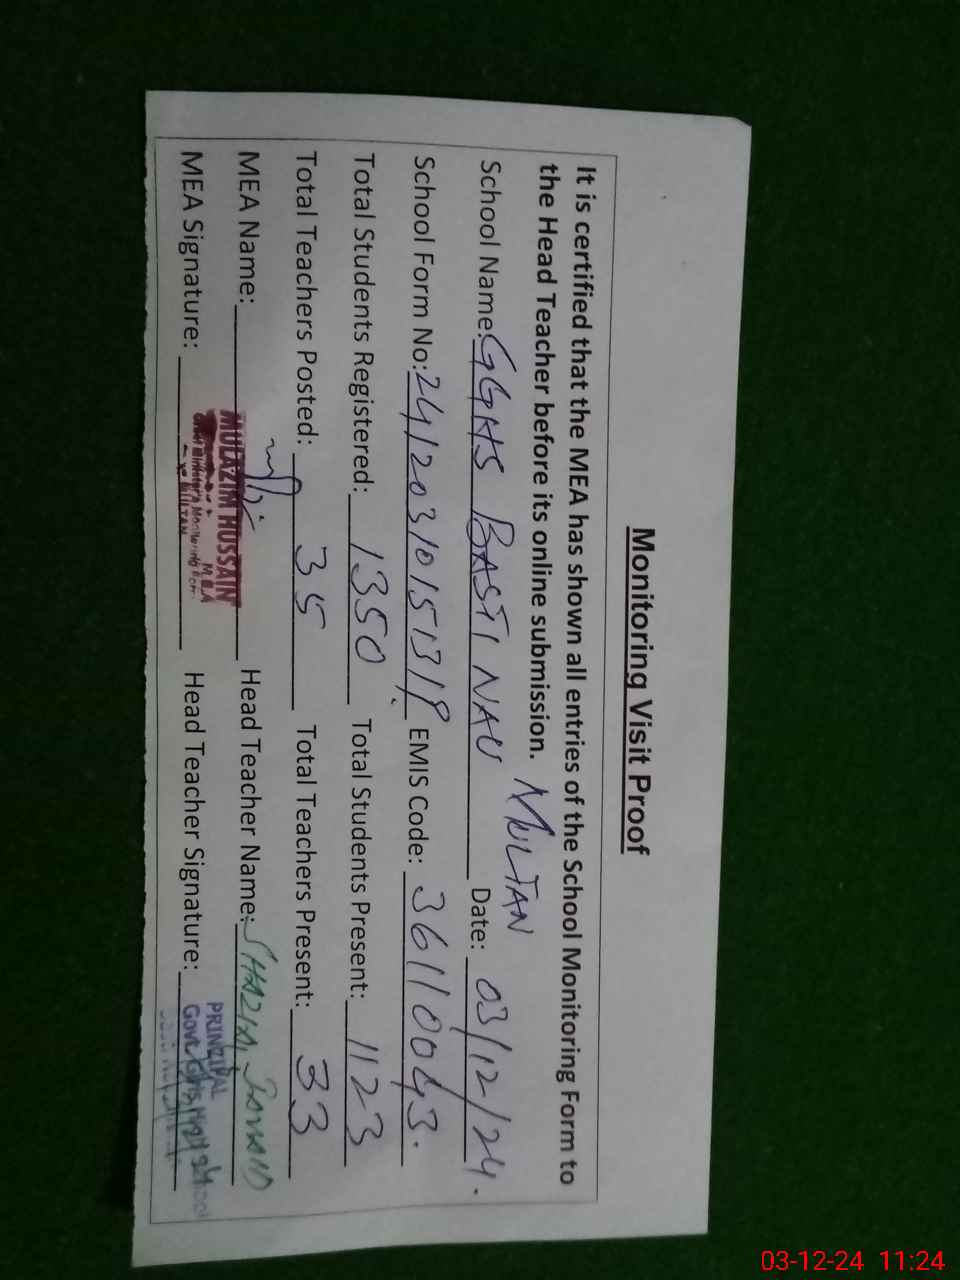 Monitoring Visit Proof
It is certified that the MEA has shown all entries of the School Monitoring Form to
the Head Teacher before its online submission.
MULTAN
School Name: GGHS BASTI NAU Date: 03/12/24.
School Form No: EMIS Code: 36110043.
Total Students Registered: 1350 Total Students Present: 1123
Total Teachers Posted: 35 Total Teachers Present: 33
MEA Name: MULAZIM HUSSAIN Head Teacher Name: SHAZIA
MEA
MEA Signature: Head Teacher Signature:
MULTAN
PRINZIPAL
Govt. Girls High School
03-12-24 11:24